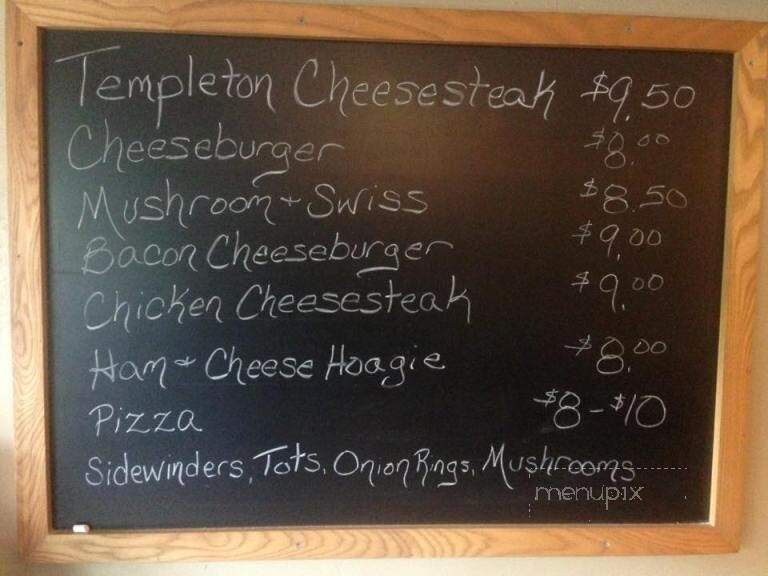 Templeton Cheesesteak $9.50
Cheeseburger $8.00
Mushroom + Swiss $8.50
Bacon Cheeseburger $9.00
Chicken Cheesesteak $9.00
Ham + Cheese Hoagie $8.00
Pizza $8-$10
Sidewinders, Tots, Onion Rings, Mushrooms
menupix